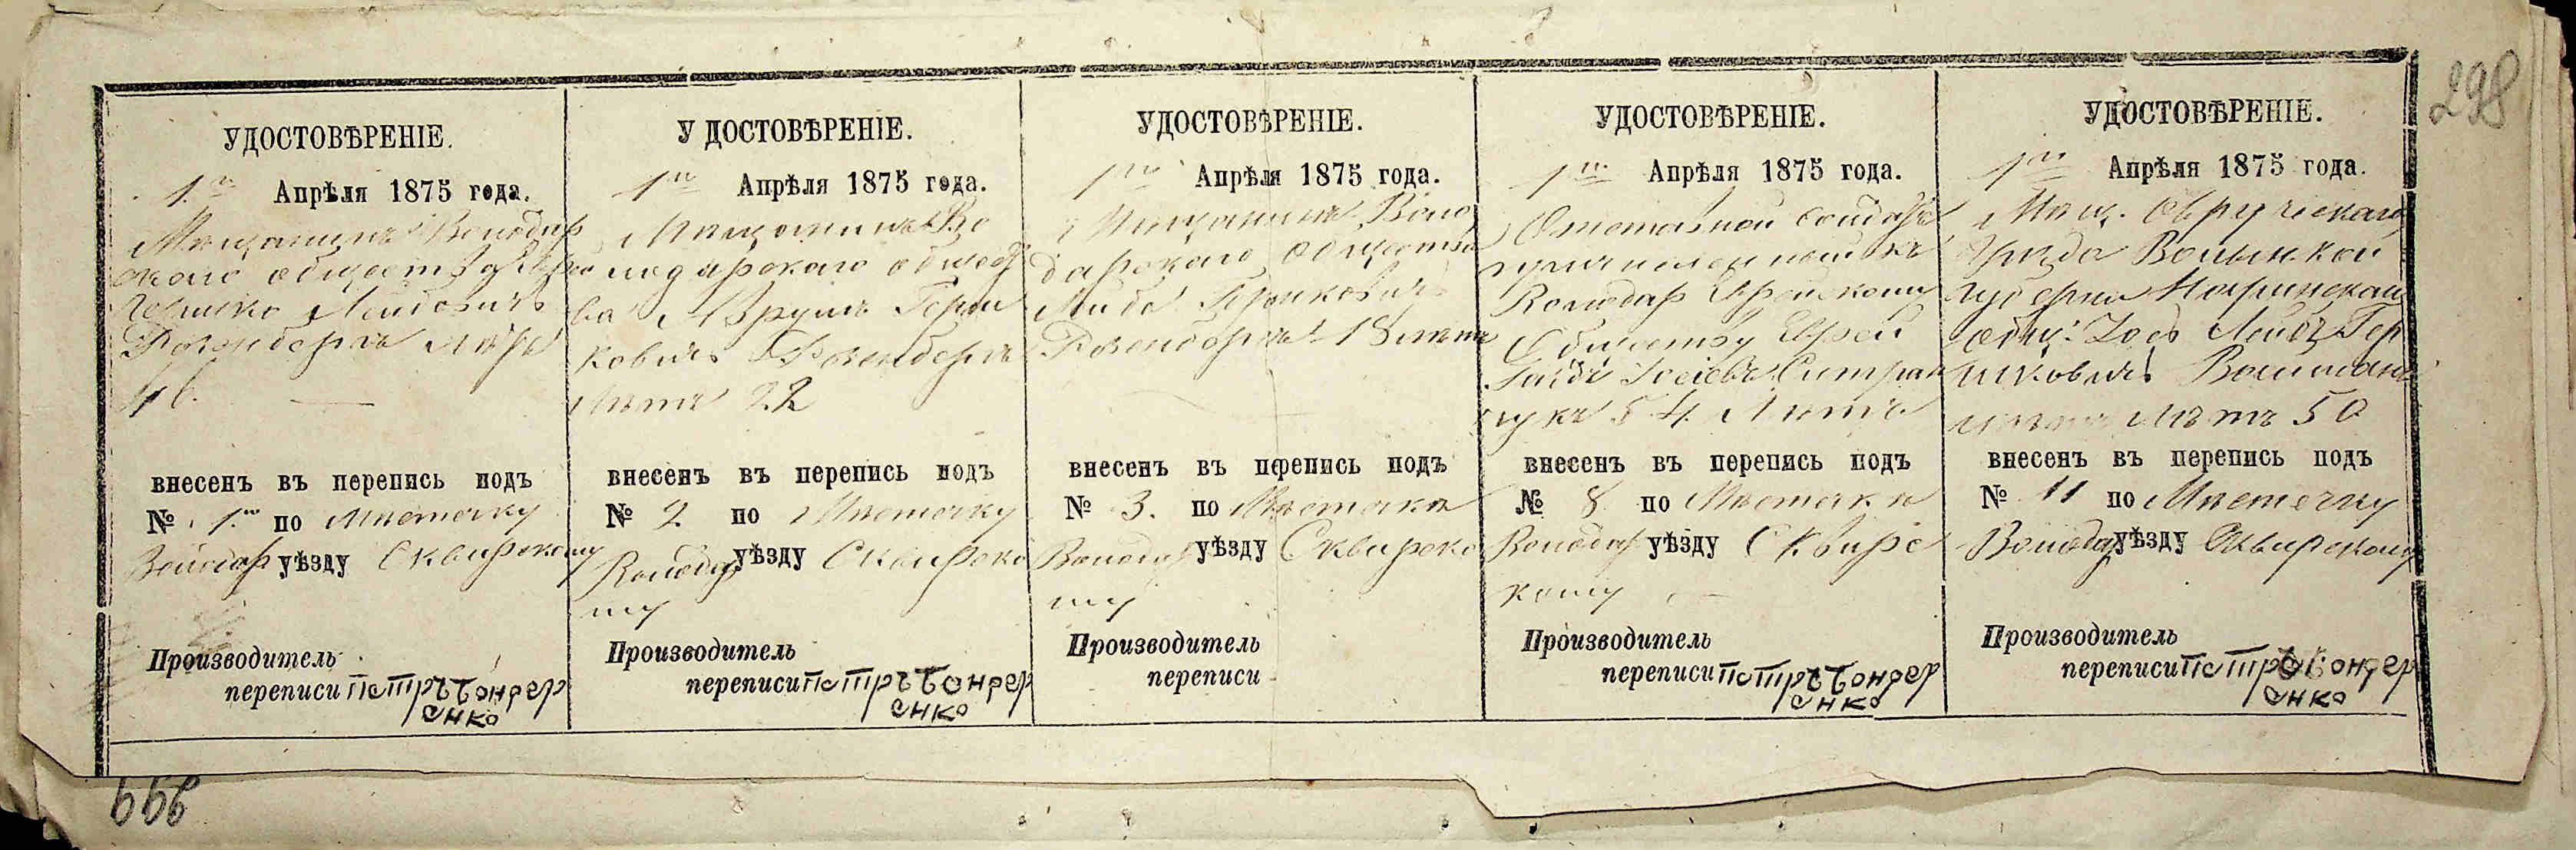 298
УДОСТОВѢРЕНІЕ.
1го Апрѣля 1875 года.
Мѣщанинъ Володар
скаго общества
Гершко Лейбовичъ
Розенбергъ лѣтъ
46.
внесенъ въ перепись подъ
№ 1 по Мѣстечку
Володар уѣзду Сквирскому
Производитель
переписи Петръ Бондар
енко
УДОСТОВѢРЕНІЕ.
1го Апрѣля 1875 года.
Мѣщанинъ Во
лодарскаго общест
ва Аврумъ Герш
ковичъ Розенбергъ
Лѣтъ 22
внесенъ въ перепись подъ
№ 2 по Мѣстечку
Володар уѣзду Сквирско
му
Производитель
переписи Петръ Бондер
енко
УДОСТОВѢРЕНІЕ.
1го Апрѣля 1875 года.
Мѣщанинъ Воло
дарскаго Общества
Лейба Гершковичъ
Розенбергъ 18 лѣтъ
внесенъ въ перепись подъ
№ 3. по Мѣстечкѣ
Володар уѣзду Сквирско
му
Производитель
переписи
УДОСТОВѢРЕНІЕ.
1го Апрѣля 1875 года.
Отставной солдатъ
къ
Володар Еврейскому
Обществу Еврей
54 Лѣтъ
внесенъ въ перепись подъ
№ 8 по Мѣстечкѣ
Володар уѣзду Сквирс
кому
Производитель
переписи Петръ Бондер
енко
УДОСТОВѢРЕНІЕ.
1го Апрѣля 1875 года.
Мѣщ. Овручскаго
Уѣзда Волынской
Губерніи
общ. Іось Лейбъ Гер
шковичъ
Лѣтъ 50
внесенъ въ перепись подъ
№ 11 по Мѣстечку
Володар уѣзду Сквирскому
Производитель
переписи Петръ Бондер
енко